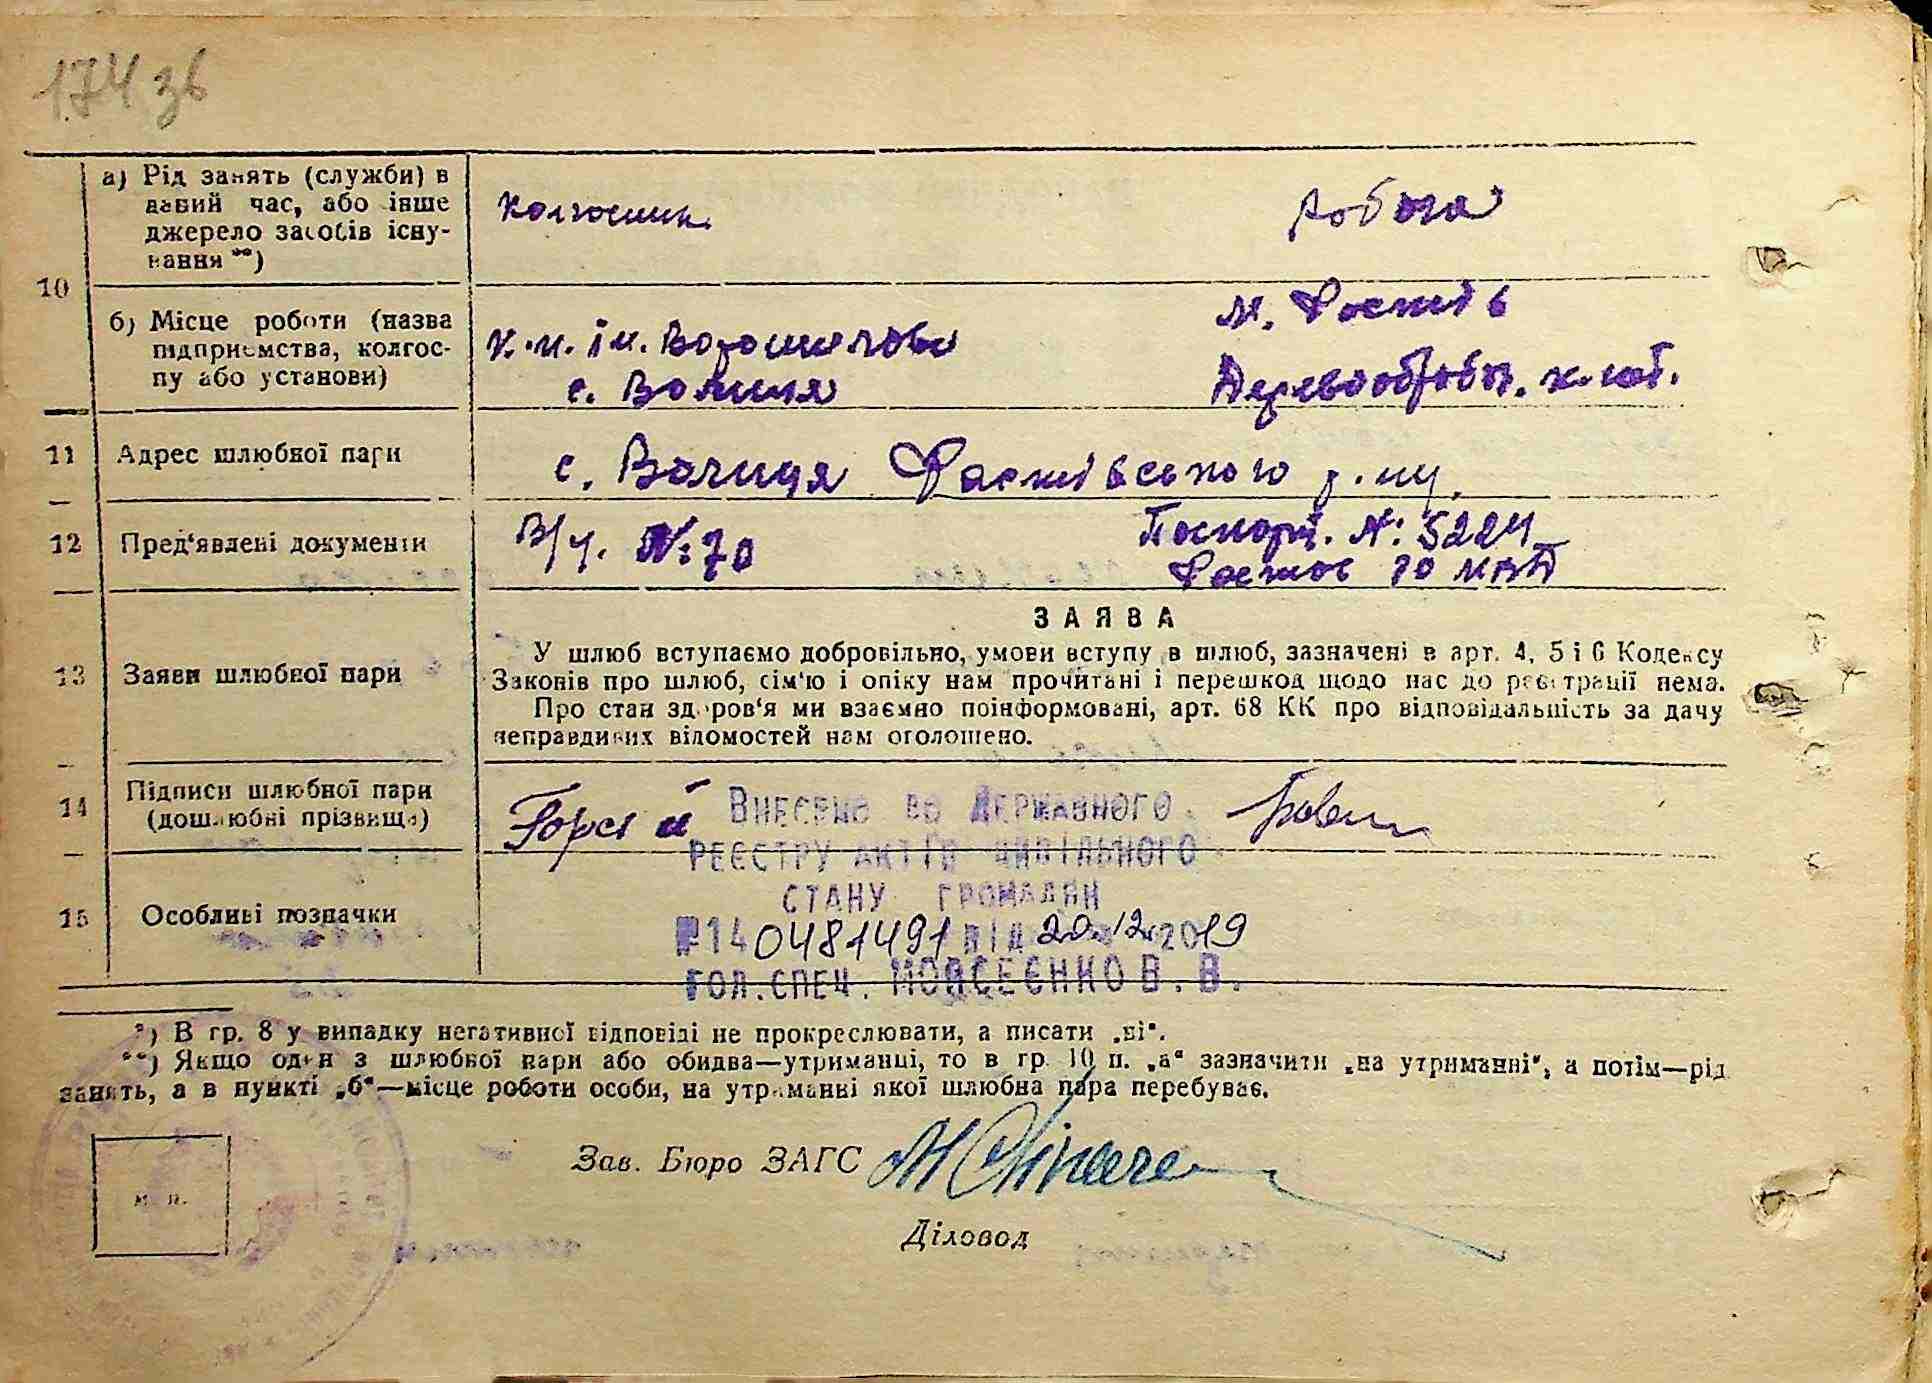 174 зв
10
а) Рід занять (служби) в
даний час, або інше
джерело засобів існу-
вання **)
колгоспник
робоча
б) Місце роботи (назва
підприємства, колгос-
пу або установи)
к.-п. ім. Ворошилова
с. Волиця
м. Фастів
Деревообробн. к-нат.
11
Адрес шлюбної пари
с. Волиця Фастівського р-ну
12
Пред'явлені документи
В/ч. №: 70
Паспорт. №: 5224
Фастов
13
Заяви шлюбної пари
ЗАЯВА
У шлюб вступаємо добровільно, умови вступу в шлюб, зазначені в арт. 4, 5 і 6 Кодексу
Законів про шлюб, сім'ю і опіку нам прочитані і перешкод щодо нас до реєстрації нема.
Про стан здоров'я ми взаємно поінформовані, арт. 68 КК про відповідальність за дачу
неправдивих відомостей нам оголошено.
14
Підписи шлюбної пари
(дошлюбні прізвища)
15
Особливі позначки
Внесено до Державного
реєстру актів цивільного
стану громадян
№ 140481491 від 20.12.2019
Гол. спец. Мойсеєнко В. В.
*) В гр. 8 у випадку негативної відповіді не прокреслювати, а писати „ні“.
**) Якщо один з шлюбної пари або обидва—утриманці, то в гр. 10 п. „а“ зазначити „на утриманні“, а потім—рід
занять, а в пункті „б“—місце роботи особи, на утриманні якої шлюбна пара перебуває.
Зав. Бюро ЗАГС
м. п.
Діловод